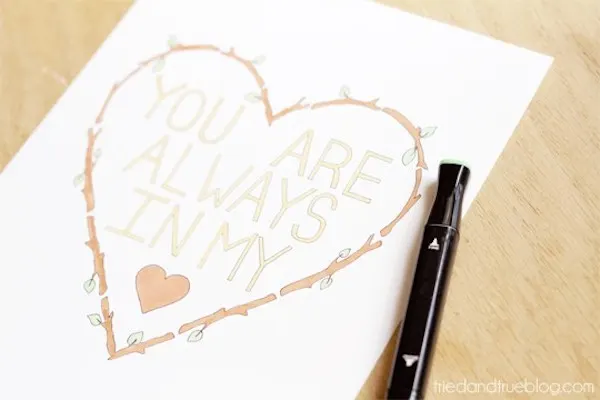 YOU ARE
ALWAYS
IN MY
triedandtrueblog.com